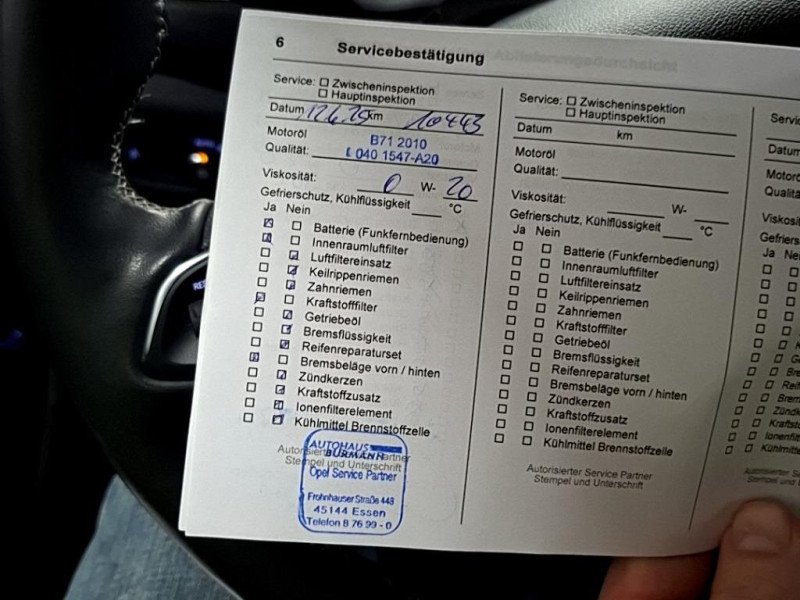 6 Servicebestätigung
Service: Zwischeninspektion
Hauptinspektion
Datum 12.6.25 km 10443
Motoröl
Qualität: B71 2010
L 040 1547-A20
Viskosität: 0 W- 20
Gefrierschutz, Kühlflüssigkeit °C
Ja Nein
Batterie (Funkfernbedienung)
Innenraumluftfilter
Luftfiltereinsatz
Keilrippenriemen
Zahnriemen
Kraftstofffilter
Getriebeöl
Bremsflüssigkeit
Reifenreparaturset
Bremsbeläge vorn / hinten
Zündkerzen
Kraftstoffzusatz
Ionenfilterelement
Kühlmittel Brennstoffzelle
Autorisierter Service Partner
Stempel und Unterschrift
AUTOHAUS
BURMANN
Opel Service Partner
Frohnhauser Straße 448
45144 Essen
Telefon 8 76 99 - 0
Service: Zwischeninspektion
Hauptinspektion
Datum km
Motoröl
Qualität:
Viskosität: W-
Gefrierschutz, Kühlflüssigkeit °C
Ja Nein
Batterie (Funkfernbedienung)
Innenraumluftfilter
Luftfiltereinsatz
Keilrippenriemen
Zahnriemen
Kraftstofffilter
Getriebeöl
Bremsflüssigkeit
Reifenreparaturset
Bremsbeläge vorn / hinten
Zündkerzen
Kraftstoffzusatz
Ionenfilterelement
Kühlmittel Brennstoffzelle
Autorisierter Service Partner
Stempel und Unterschrift